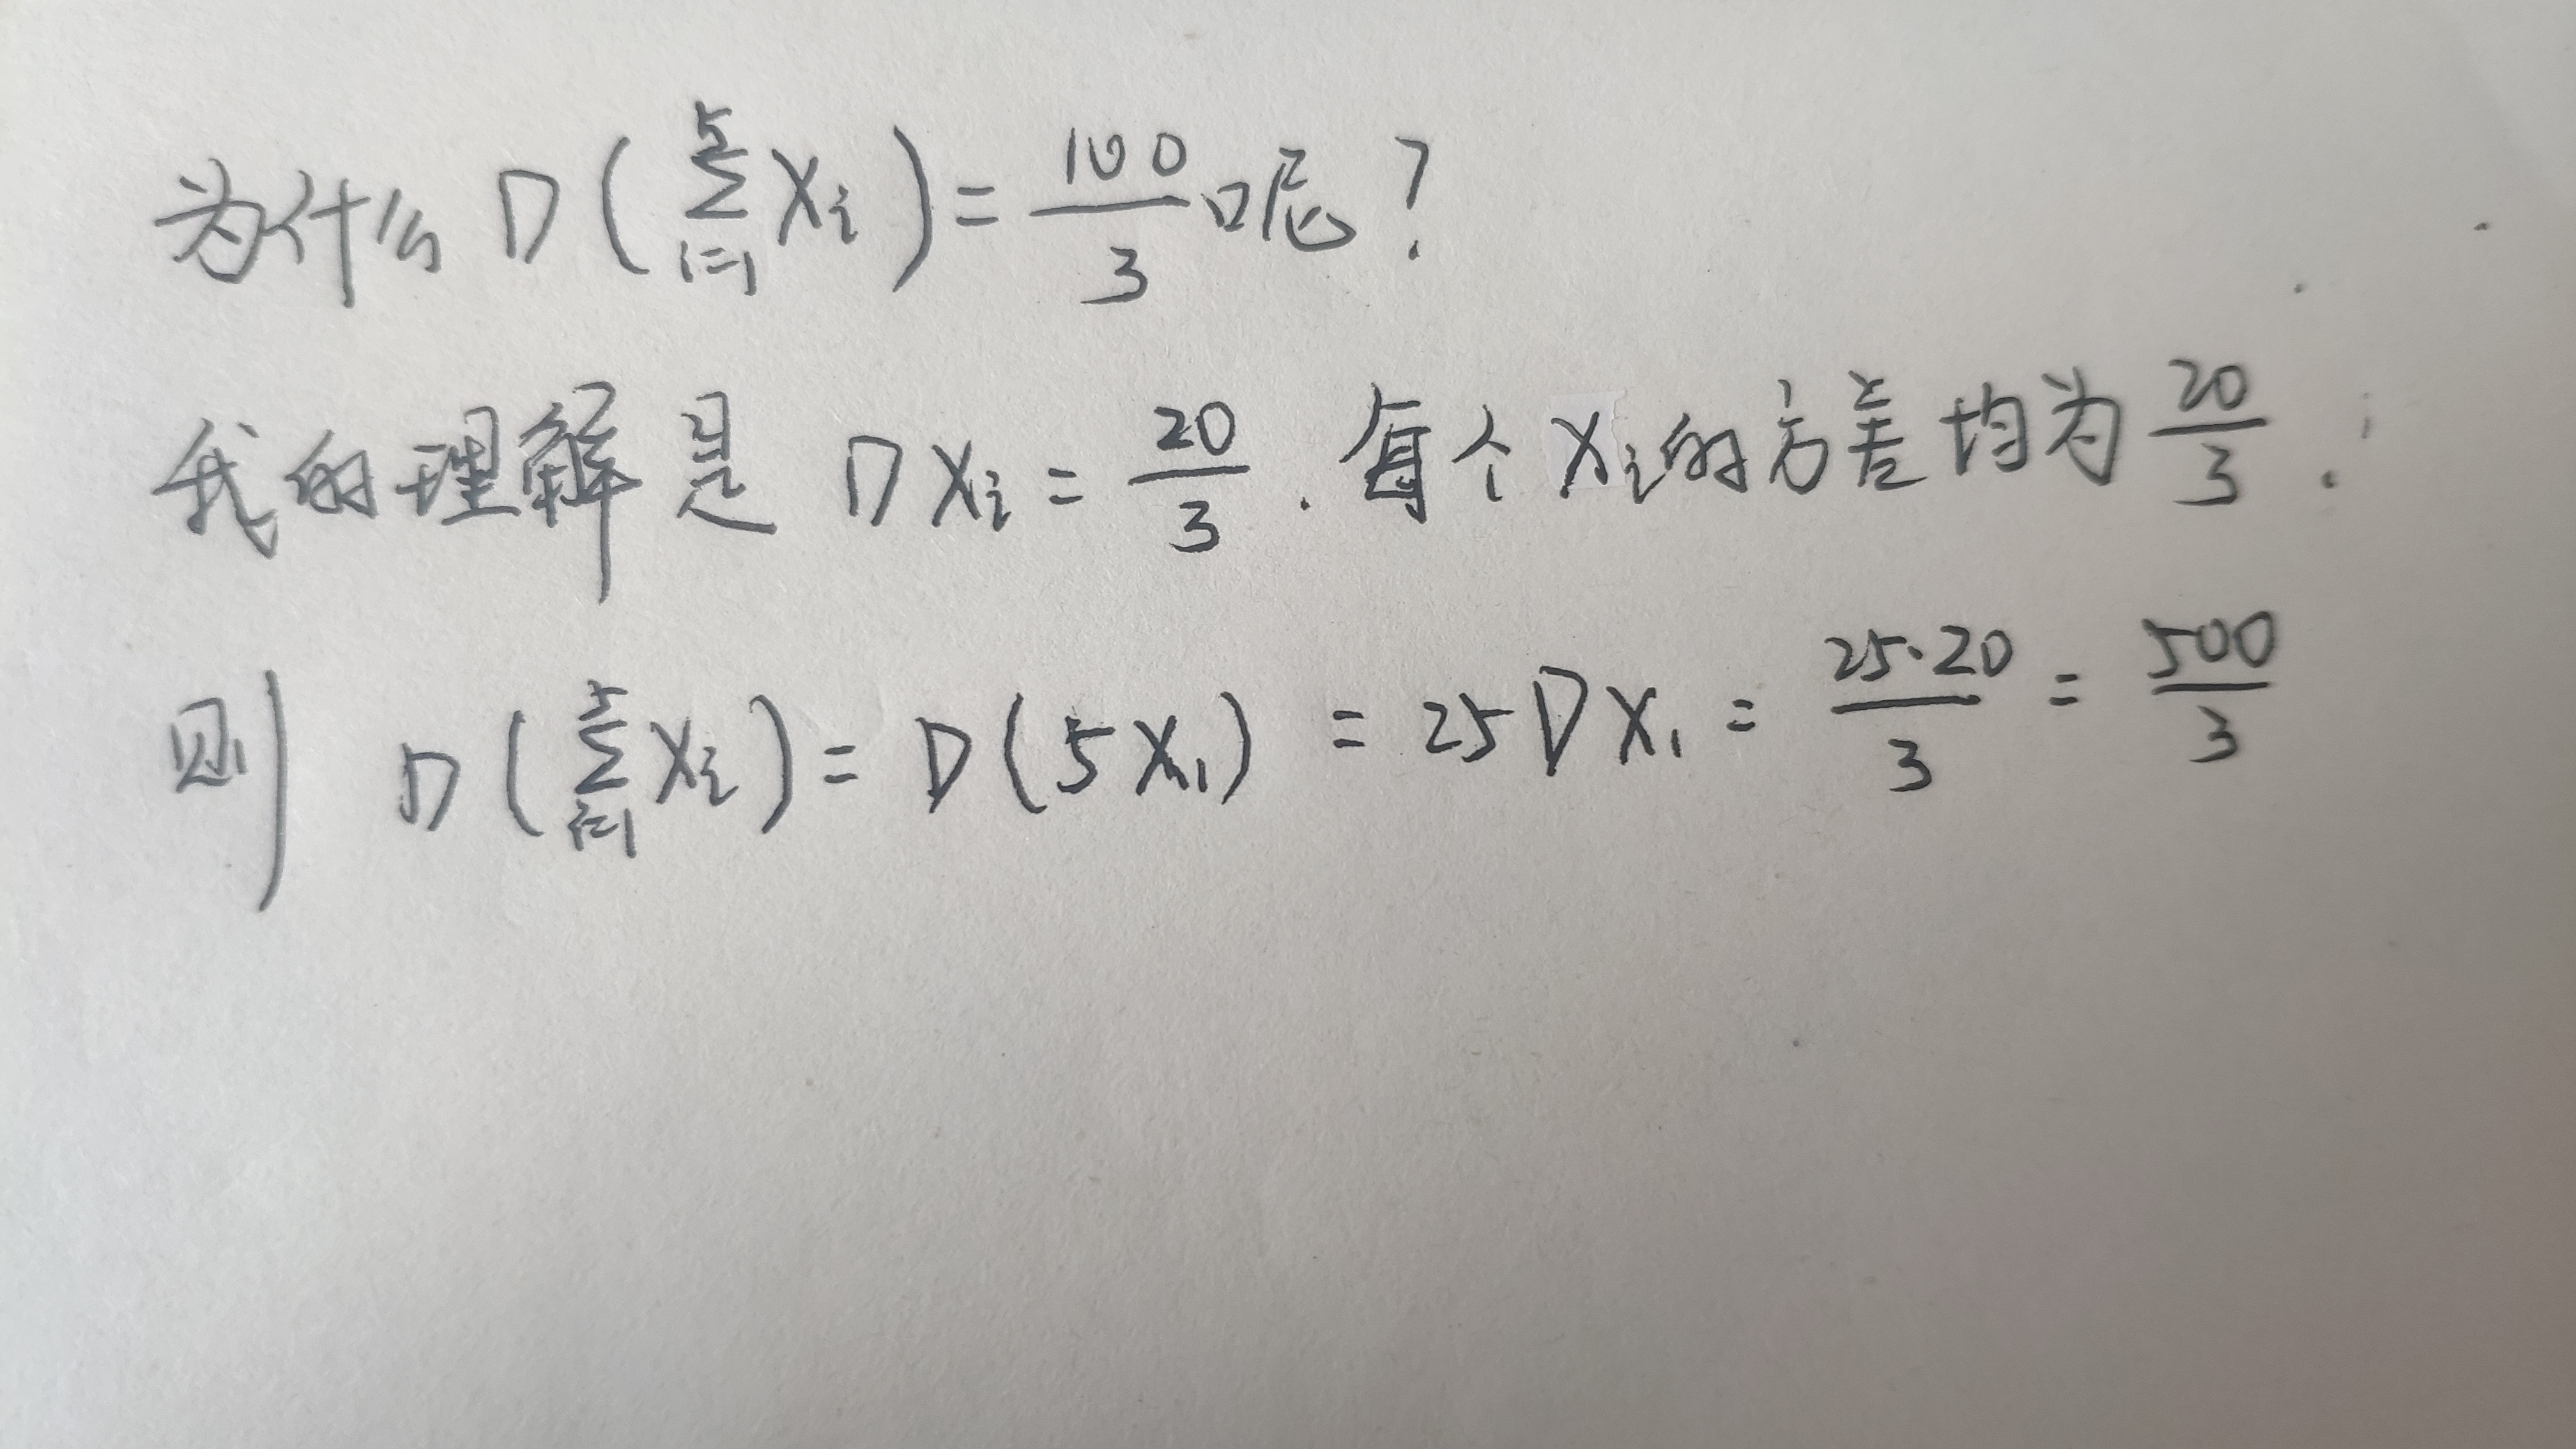 为什么 D(∑_{i=1}^{5} X_i) = 100/3 呢?
我的理解是 DX_i = 20/3 . 每个 X_i 的方差均为 20/3 .
则 D(∑_{i=1}^{5} X_i) = D(5X_1) = 25DX_1 = 25·20/3 = 500/3